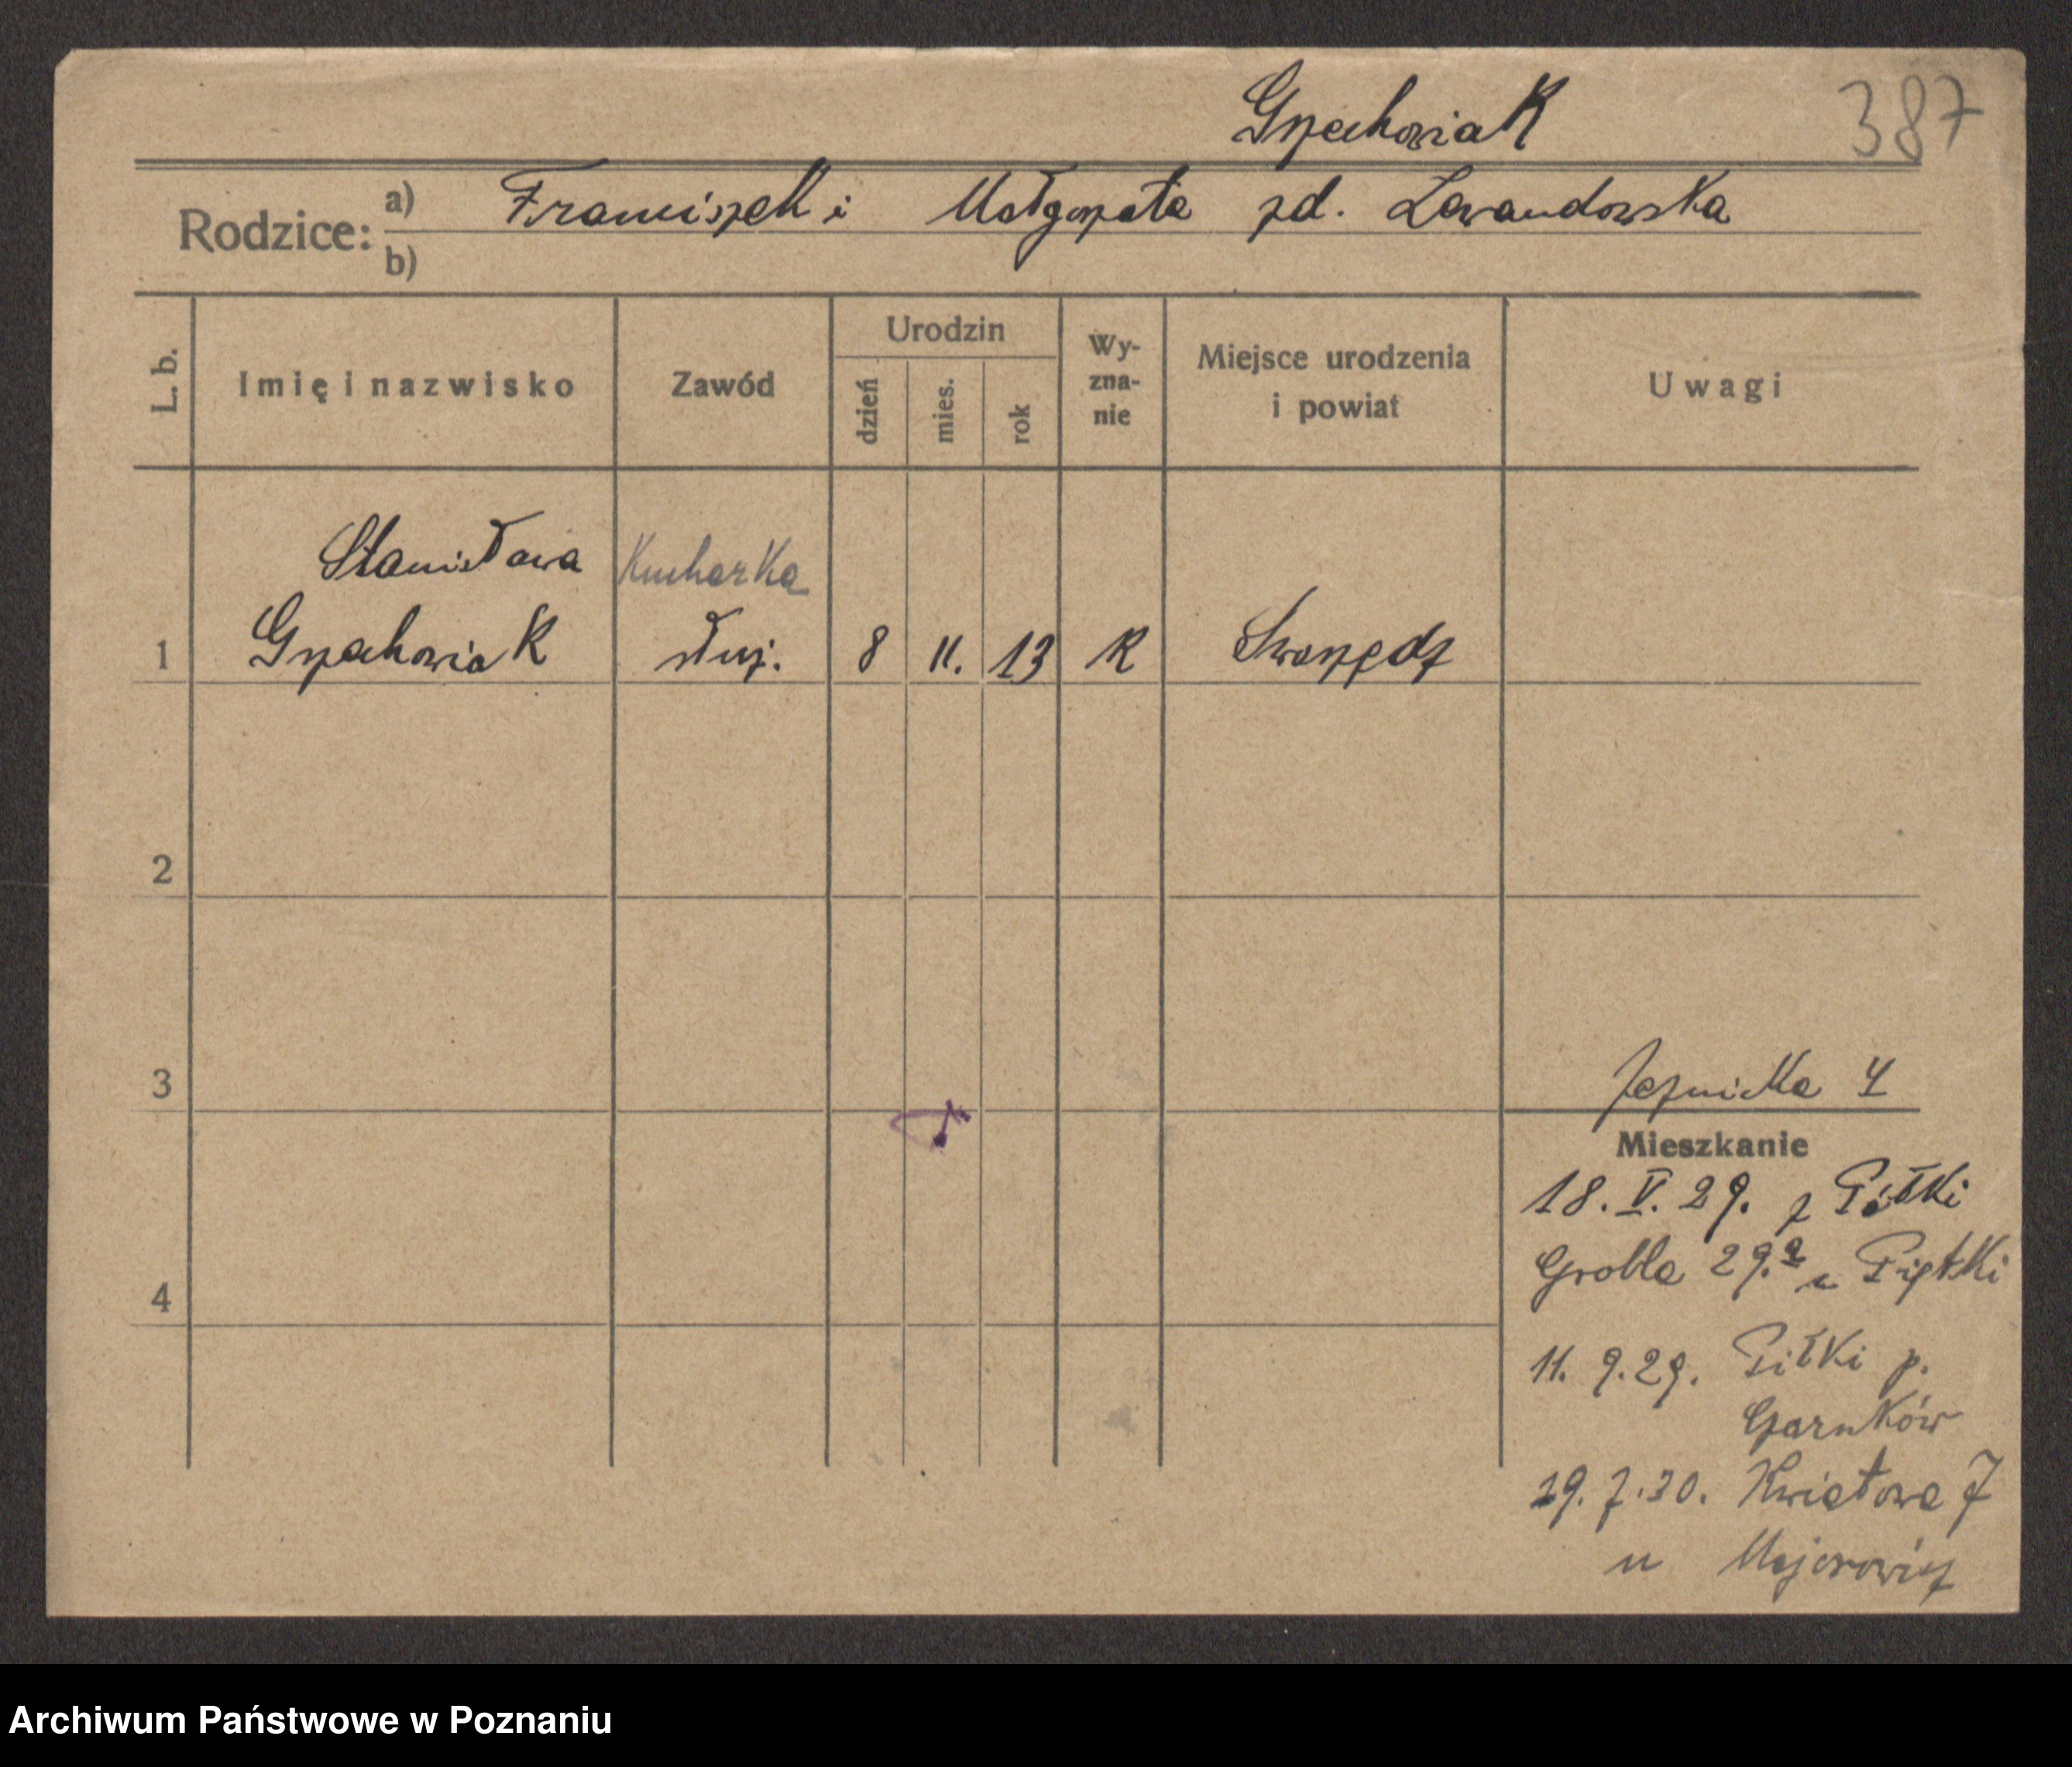 Grzechowiak
387
Rodzice:
a) Franciszek i Małgorzata zd. Lewandowska
b)
L. b.
Imię i nazwisko
Zawód
Urodzin
dzień
mies.
rok
Wy-
zna-
nie
Miejsce urodzenia
i powiat
Uwagi
Stanisława
Kucharka
1
Grzechowiak
służ.
8
11.
13
K
Swarzędz
2
3
Jezuicka 4
Mieszkanie
18. V. 29. z Piłki
Grobla 29.a u
4
11. 9. 29. Piłki p.
29. 7. 30. Kwiatowa 7
u Majerowicz
Archiwum Państwowe w Poznaniu